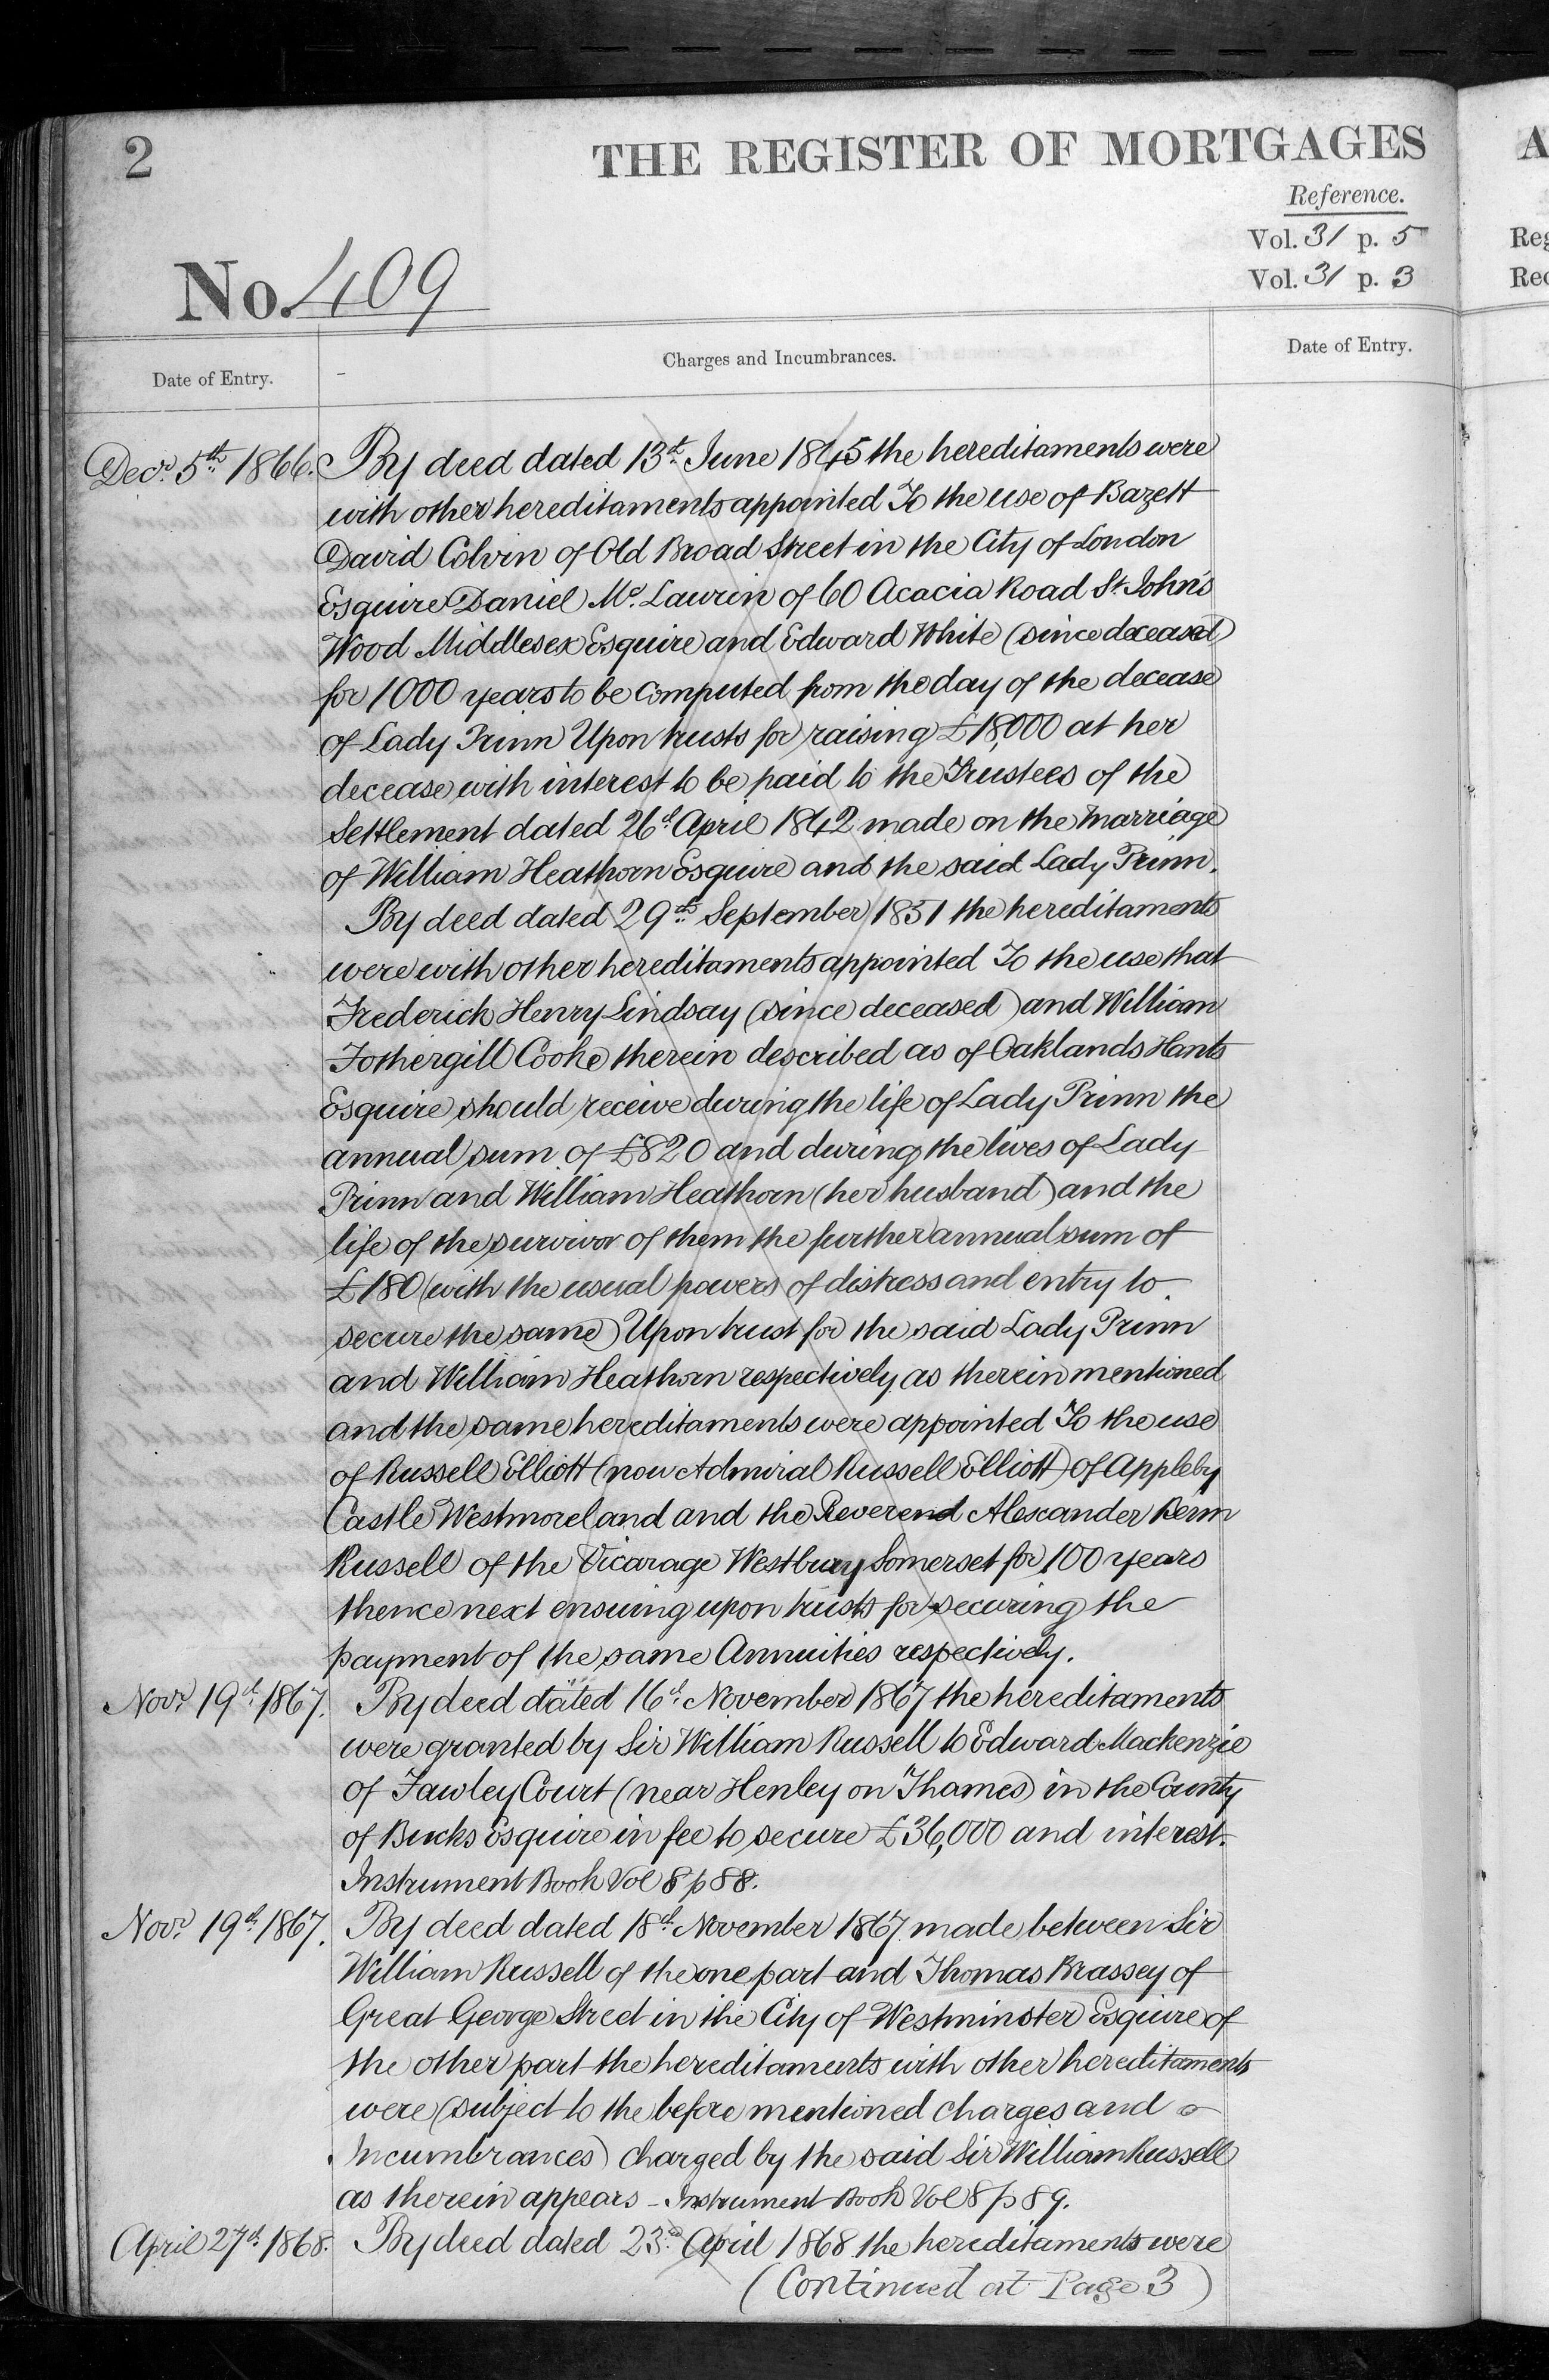 2
THE REGISTER OF MORTGAGES
A
Reference.
Vol. 31 p. 5
Reg
Vol. 31 p. 3
Rec
No. 409
Date of Entry.
Charges and Incumbrances.
Date of Entry.
Decr. 5th. 1866. By deed dated 13th. June 1845 the hereditaments were
with other hereditaments appointed To the use of Bazett
David Colvin of Old Broad Street in the City of London
Esquire Daniel Mc. Laurin of 60 Acacia Road St. John's
Wood Middlesex Esquire and Edward White (since deceased)
for 1000 years to be computed from the day of the decease
of Lady Prinn Upon trusts for raising £18,000 at her
decease with interest to be paid to the Trustees of the
Settlement dated 26th April 1842 made on the marriage
of William Heathorn Esquire and the said Lady Prinn.
By deed dated 29th. September 1851 the hereditaments
were with other hereditaments appointed To the use that
Frederick Henry Lindsay (since deceased) and William
Fothergill Cooke therein described as of Oaklands Hants
Esquire should receive during the life of Lady Prinn the
annual sum of £820 and during the lives of Lady
Prinn and William Heathorn (her husband) and the
life of the survivor of them the further annual sum of
£180 (with the usual powers of distress and entry to
secure the same) Upon trust for the said Lady Prinn
and William Heathorn respectively as therein mentioned
and the same hereditaments were appointed To the use
of Russell Elliott (now Admiral Russell Elliott) of Appleby
Castle Westmoreland and the Reverend Alexander Benn
Russell of the Vicarage Westbury Somerset for 100 years
thence next ensuing upon trusts for securing the
payment of the same Annuities respectively.
Novr. 19th. 1867. By deed dated 16th. November 1867 the hereditaments
were granted by Sir William Russell to Edward Mackenzie
of Fawley Court (near Henley on Thames) in the County
of Bucks Esquire in fee to secure £36,000 and interest.
Instrument Book Vol 8 p 88.
Novr. 19th. 1867. By deed dated 18th. November 1867 made between Sir
William Russell of the one part and Thomas Brassey of
Great George Street in the City of Westminster Esquire of
the other part the hereditaments with other hereditaments
were (subject to the before mentioned charges and
Incumbrances) charged by the said Sir William Russell
as therein appears - Instrument Book Vol 8 p 89.
April 27th. 1868. By deed dated 23rd. April 1868 the hereditaments were
(Continued at Page 3)